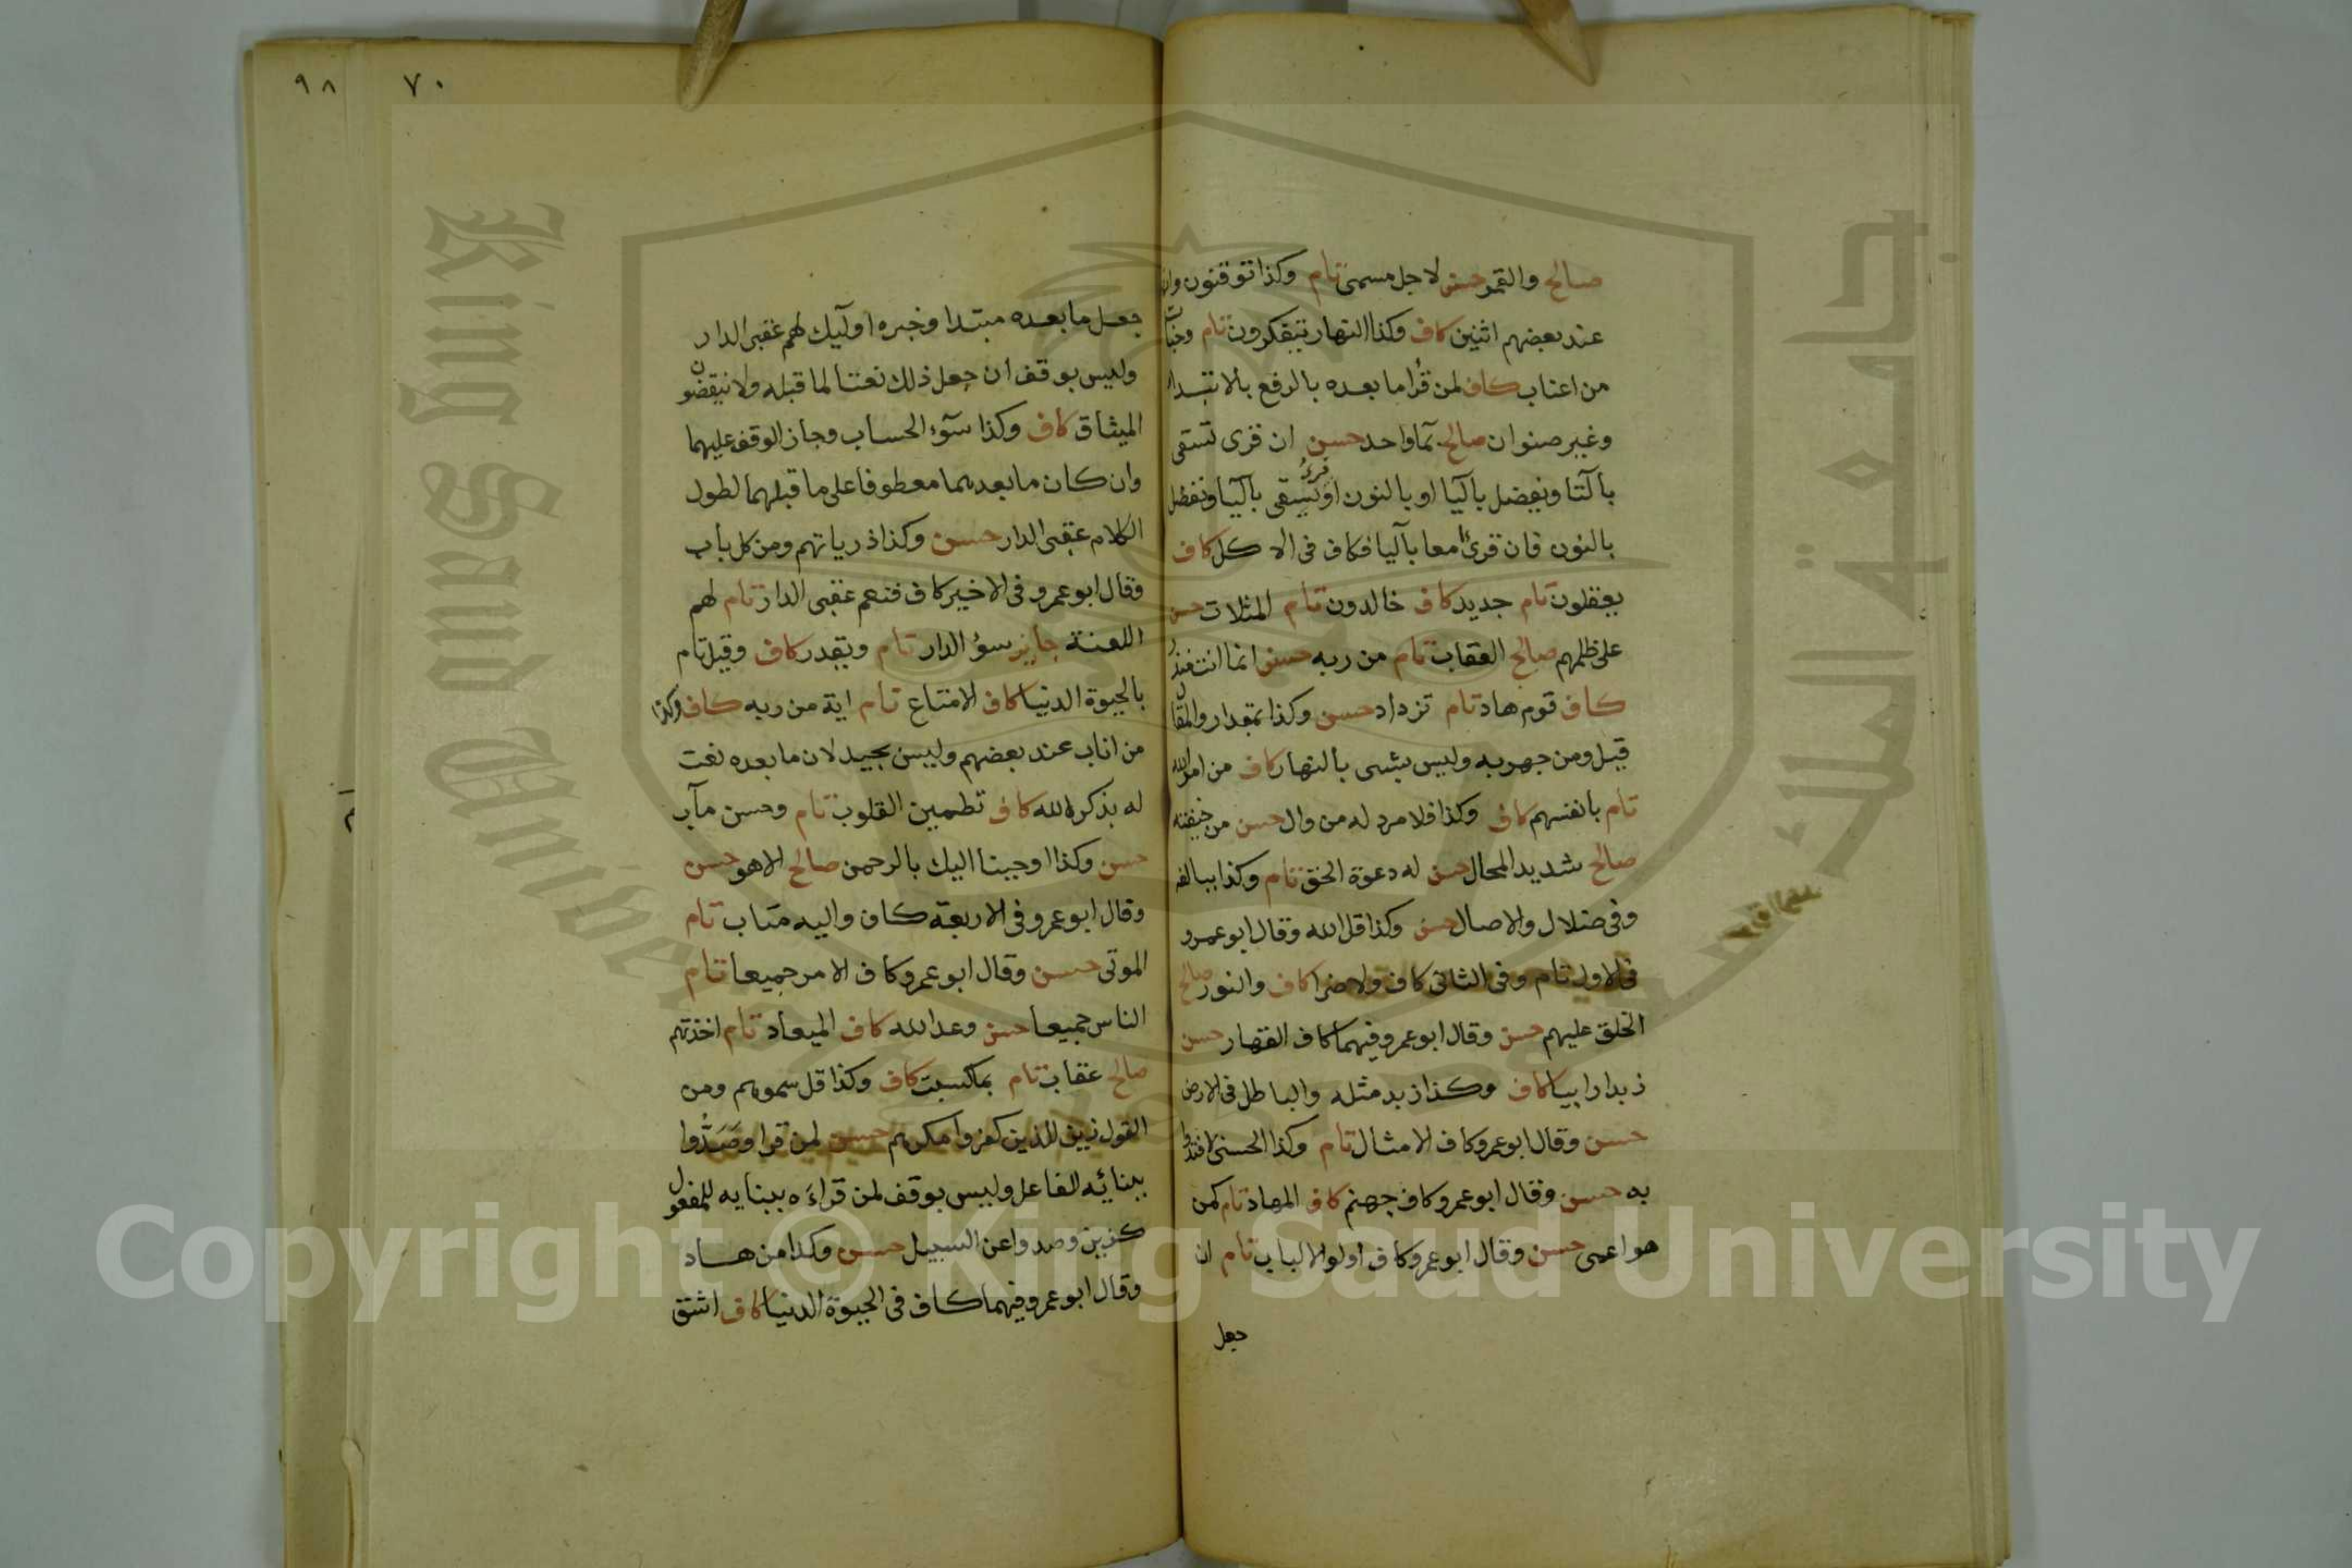 صالح والقمر حسن لاجل مسمى تام وكذا توقنون وانها
عند بعضهم اثنين كاف وكذا النهار يتفكرون تام وجنات
من اعناب كاف لمن قرأ ما بعده بالرفع بالابتداء
وغير صنوان صالح بماواحد حسن ان قرى تسقى
بالتا ويفضل باليا او بالنون او قرئ يسقى باليا ونفضل
بالنون فان قرئا معا باليا فكاف فى الا كل كاف
يعقلون تام جديد كاف خالدون تام المثلات حسن
على ظلمهم صالح العقاب تام من ربه حسن انما انت منذر
كاف قوم هاد تام تزداد حسن وكذا بمقدار والمقال
قيل ومن جهر به وليس بشى بالنهار كاف من امر الله
تام بانفسهم كاف وكذا فلا مرد له من وال حسن من خيفته
صالح شديد المحال حسن له دعوة الحق تام وكذا ببالغه
وفى ضلال والاصال حسن وكذا قل الله وقال ابو عمرو
فى الاول تام وفى الثانى كاف ولا ضرا كاف والنور صالح
الخلق عليهم حسن وقال ابو عمرو فيهما كاف القهار حسن
زبدا رابيا كاف وكذا زبد مثله والباطل فى الارض
حسن وقال ابو عمرو كاف الامثال تام وكذا الحسنى لافتدوا
به حسن وقال ابو عمرو كاف جهنم كاف المهاد تام كمن
هو اعمى حسن وقال ابو عمرو كاف اولوا الالباب تام ان
جعل
٩٨ ٧٠
جعل ما بعده مبتدا وخبره اولئك لهم عقبى الدار
وليس بوقف ان جعل ذلك نعتا لما قبله ولا ينقضون
الميثاق كاف وكذا سوء الحساب وجاز الوقف عليهما
وان كان ما بعدهما معطوفا على ما قبلهما لطول
الكلام عقبى الدار حسن وكذا ذرياتهم ومن كل باب
وقال ابو عمرو فى الاخير كاف فنعم عقبى الدار تام لهم
اللعنة جايز سؤ الدار تام ويقدر كاف وقيل تام
بالحيوة الدنيا كاف الامتاع تام اية من ربه كاف وكذا
من اناب عند بعضهم وليس بجيد لان ما بعده نعت
له بذكر الله كاف تطمين القلوب تام وحسن مآب
حسن وكذا اوحينا اليك بالرحمن صالح الا هو حسن
وقال ابو عمرو فى الاربعة كاف واليه متاب تام
الموتى حسن وقال ابو عمرو كاف الامر جميعا تام
الناس جميعا حسن وعد الله كاف الميعاد تام اخذتهم
صالح عقاب تام بما كسبت كاف وكذا قل سموهم ومن
القول زين للذين كفروا مكرهم حسن لمن قرا وصَدُّوا
ببنائه للفاعل وليس بوقف لمن قراءه ببنايه للمفعول
كزين وصدوا عن السبيل حسن وكذا من هاد
وقال ابو عمرو فيهما كاف فى الحيوة الدنيا كاف اشق
King Saud University
جامعة الملك سعود
Copyright © King Saud University